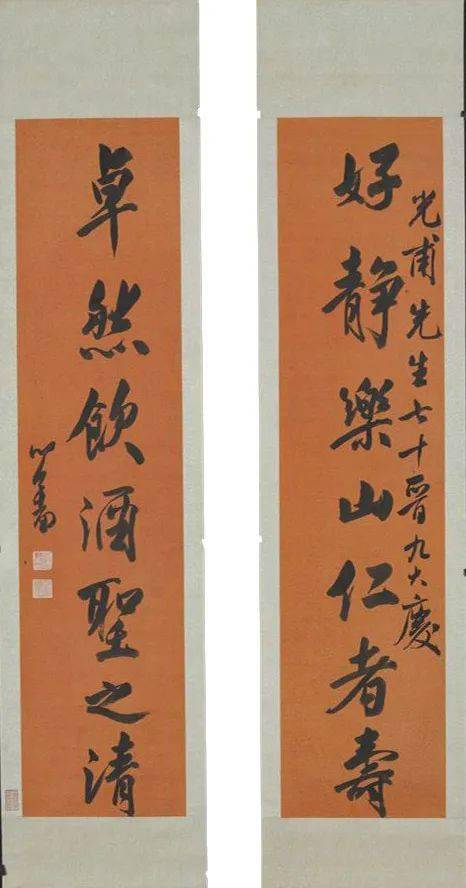 好静樂山仁者壽
光甫先生七十晉九大慶
卓然飲酒聖之清
心畬